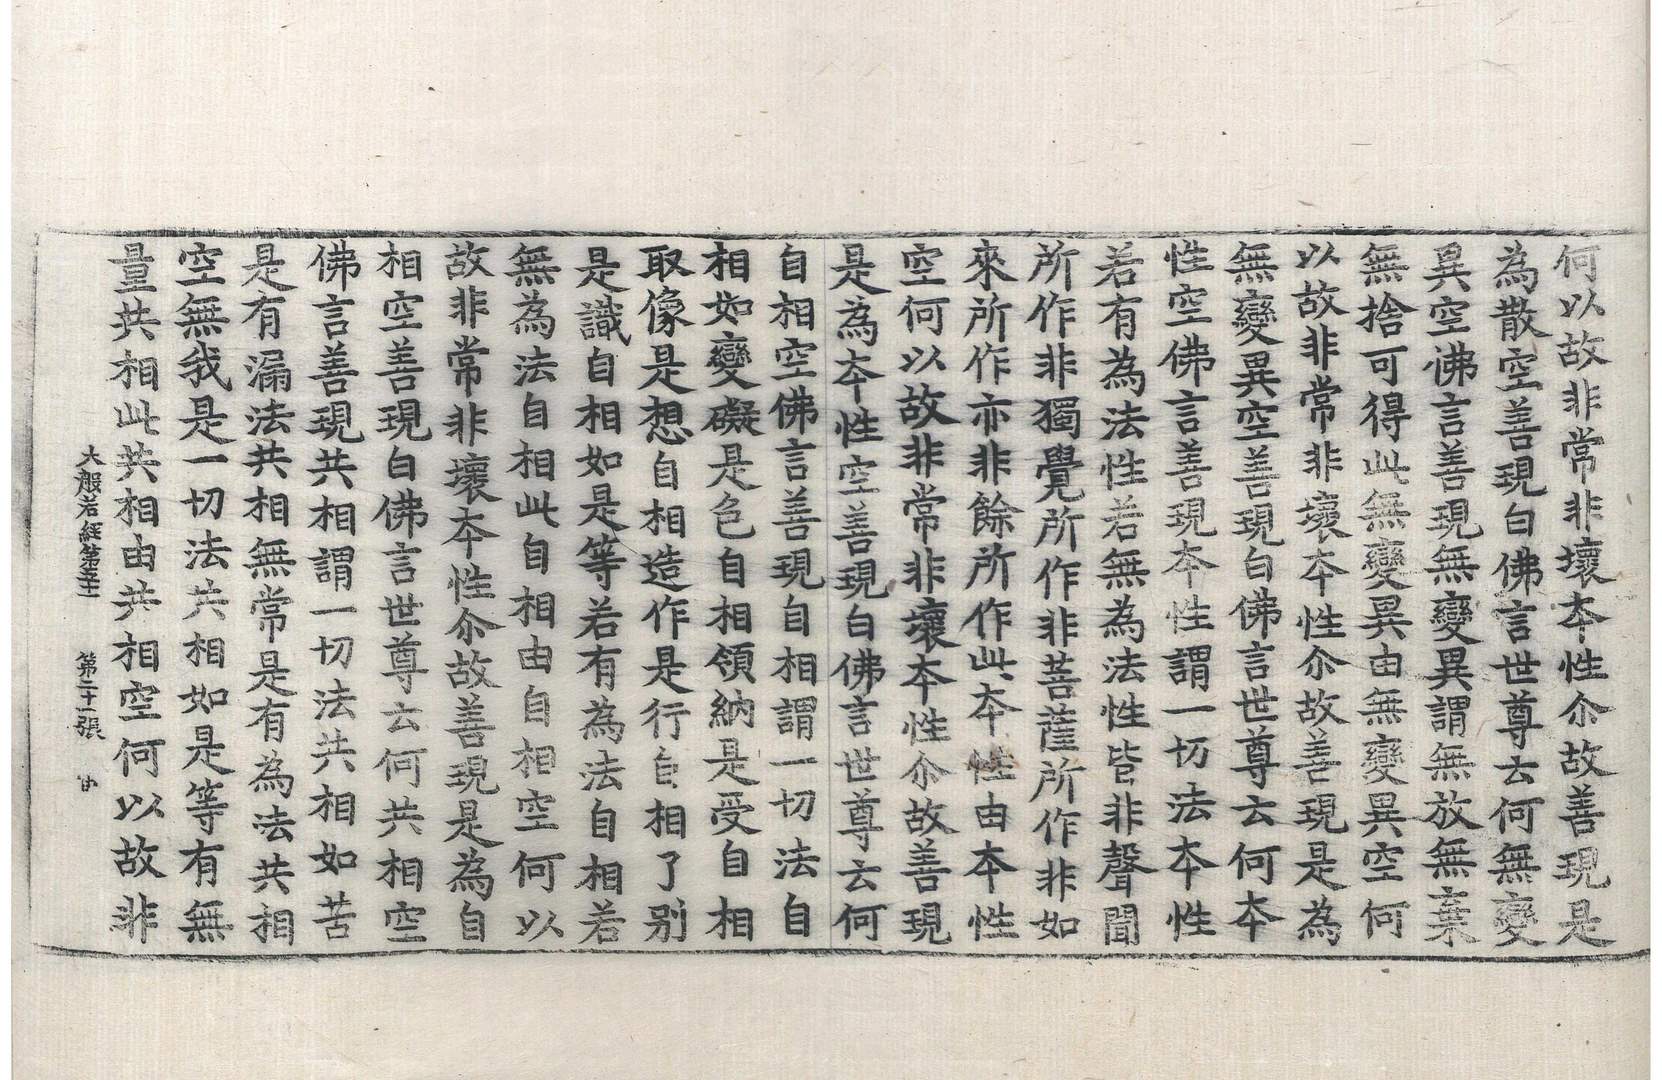 何以故非常非壞本性尒故善現是
為散空善現白佛言世尊云何無變
異空佛言善現無變異謂無放無棄
無捨可得此無變異由無變異空何
以故非常非壞本性尒故善現是為
無變異空善現白佛言世尊云何本
性空佛言善現本性謂一切法本性
若有為法性若無為法性皆非聲聞
所作非獨覺所作非菩薩所作非如
來所作亦非餘所作此本性由本性
空何以故非常非壞本性尒故善現
是為本性空善現白佛言世尊云何
自相空佛言善現自相謂一切法自
相如變礙是色自相領納是受自相
取像是想自相造作是行自相了別
是識自相如是等若有為法自相若
無為法自相此自相由自相空何以
故非常非壞本性尒故善現是為自
相空善現白佛言世尊云何共相空
佛言善現共相謂一切法共相如苦
是有漏法共相無常是有為法共相
空無我是一切法共相如是等有無
量共相此共相由共相空何以故非
大般若經第五十一 第二十一張